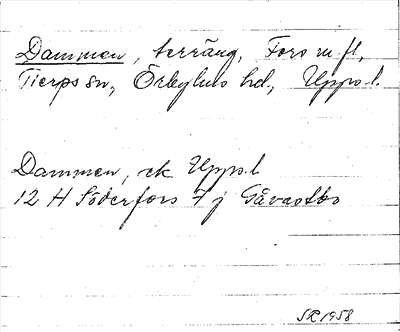 Dammen, terräng, Fors m.fl.,
Tierps sn, Örbyhus hd., Upps.l.
Dammen, ek Upps.l
12 H Söderfors 7 j Gåvastbo
SR 1958